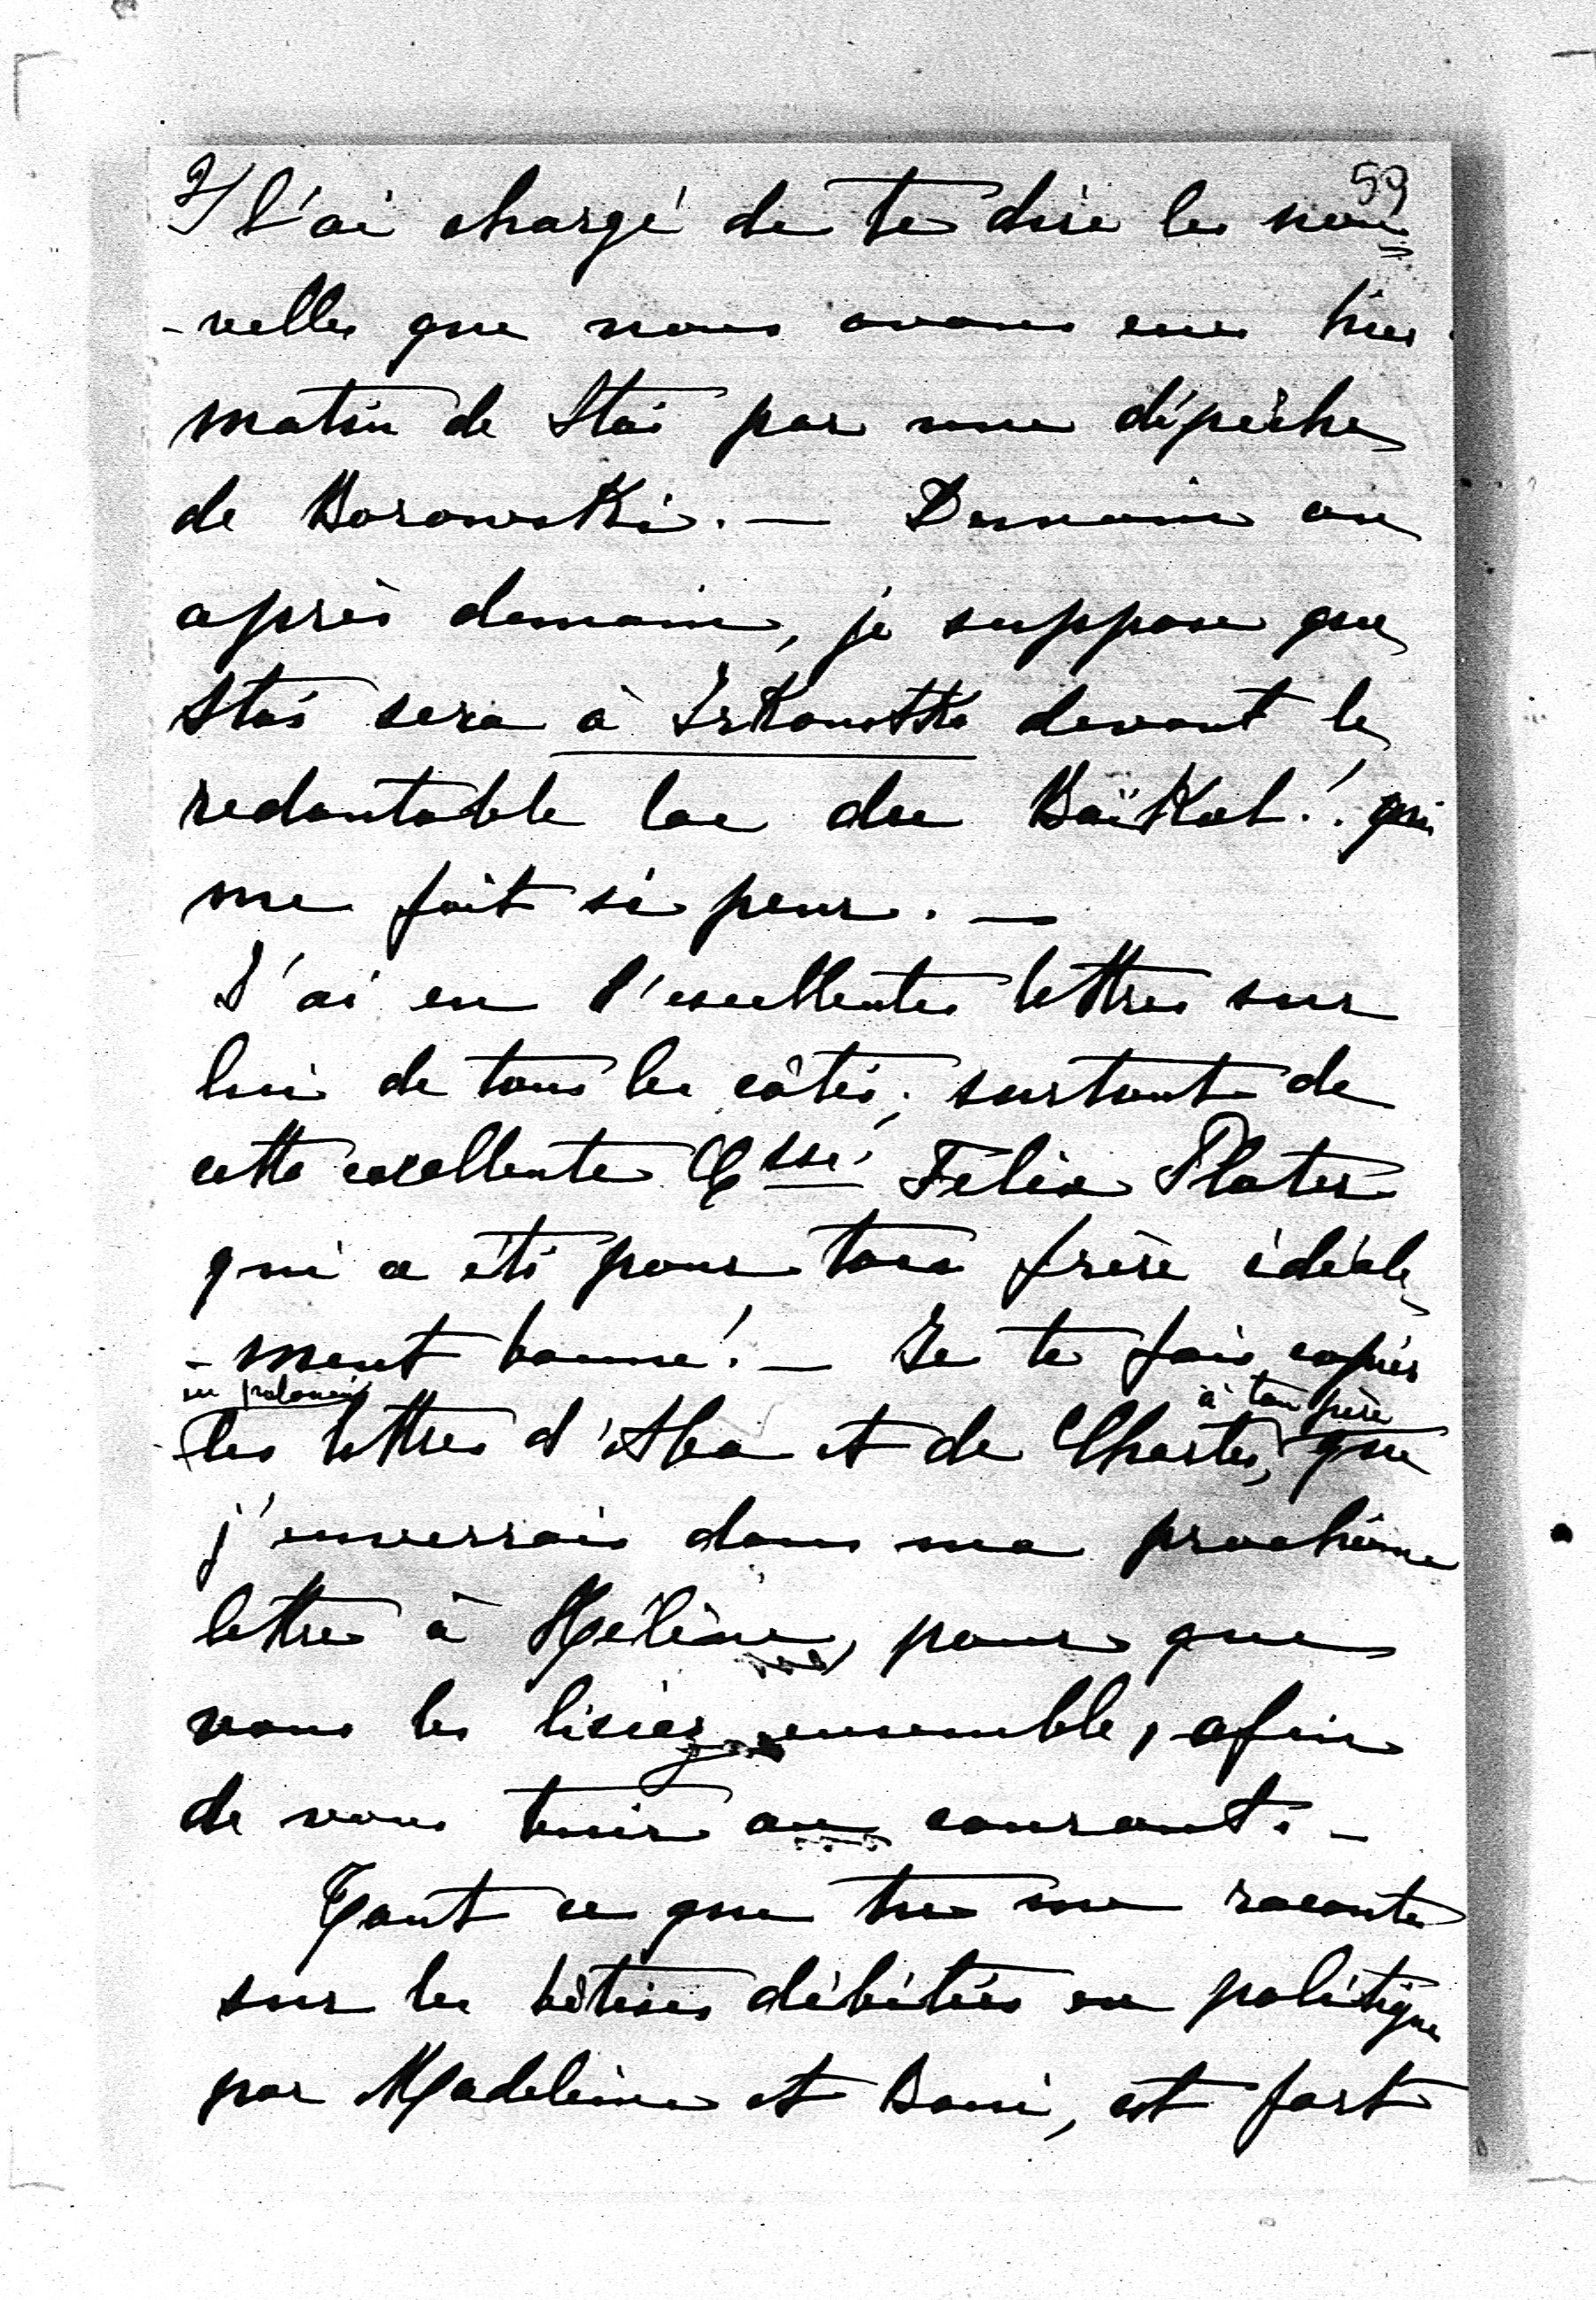 59
2/ l'ai chargé de te dire les nou=
-velles que nous avons eues hier
matin de Staś par une dépêche
de Borowski. — Demain ou
après demain, je suppose que
Staś sera à Irkoustko devant le
redoutable lac du Baïkal!. qui
me fait si peur. —
J'ai eu d'excellentes lettres sur
lui de tous les côtés; surtout de
cette excellente Csse Félix Plater
qui a été pour ton frère idéale
-ment bonne! — Je te fais copier
en polonais à ton père
les lettres d'Aba et de Charles, que
j'enverrais dans ma prochaine
lettre à Hélène, pour que
vous les lisiez ensemble, afin
de vous tenir au courant. -
Tout ce que tu me racontes
sur les bêtises débitées en politique
par Madeleine et Boni, est fort